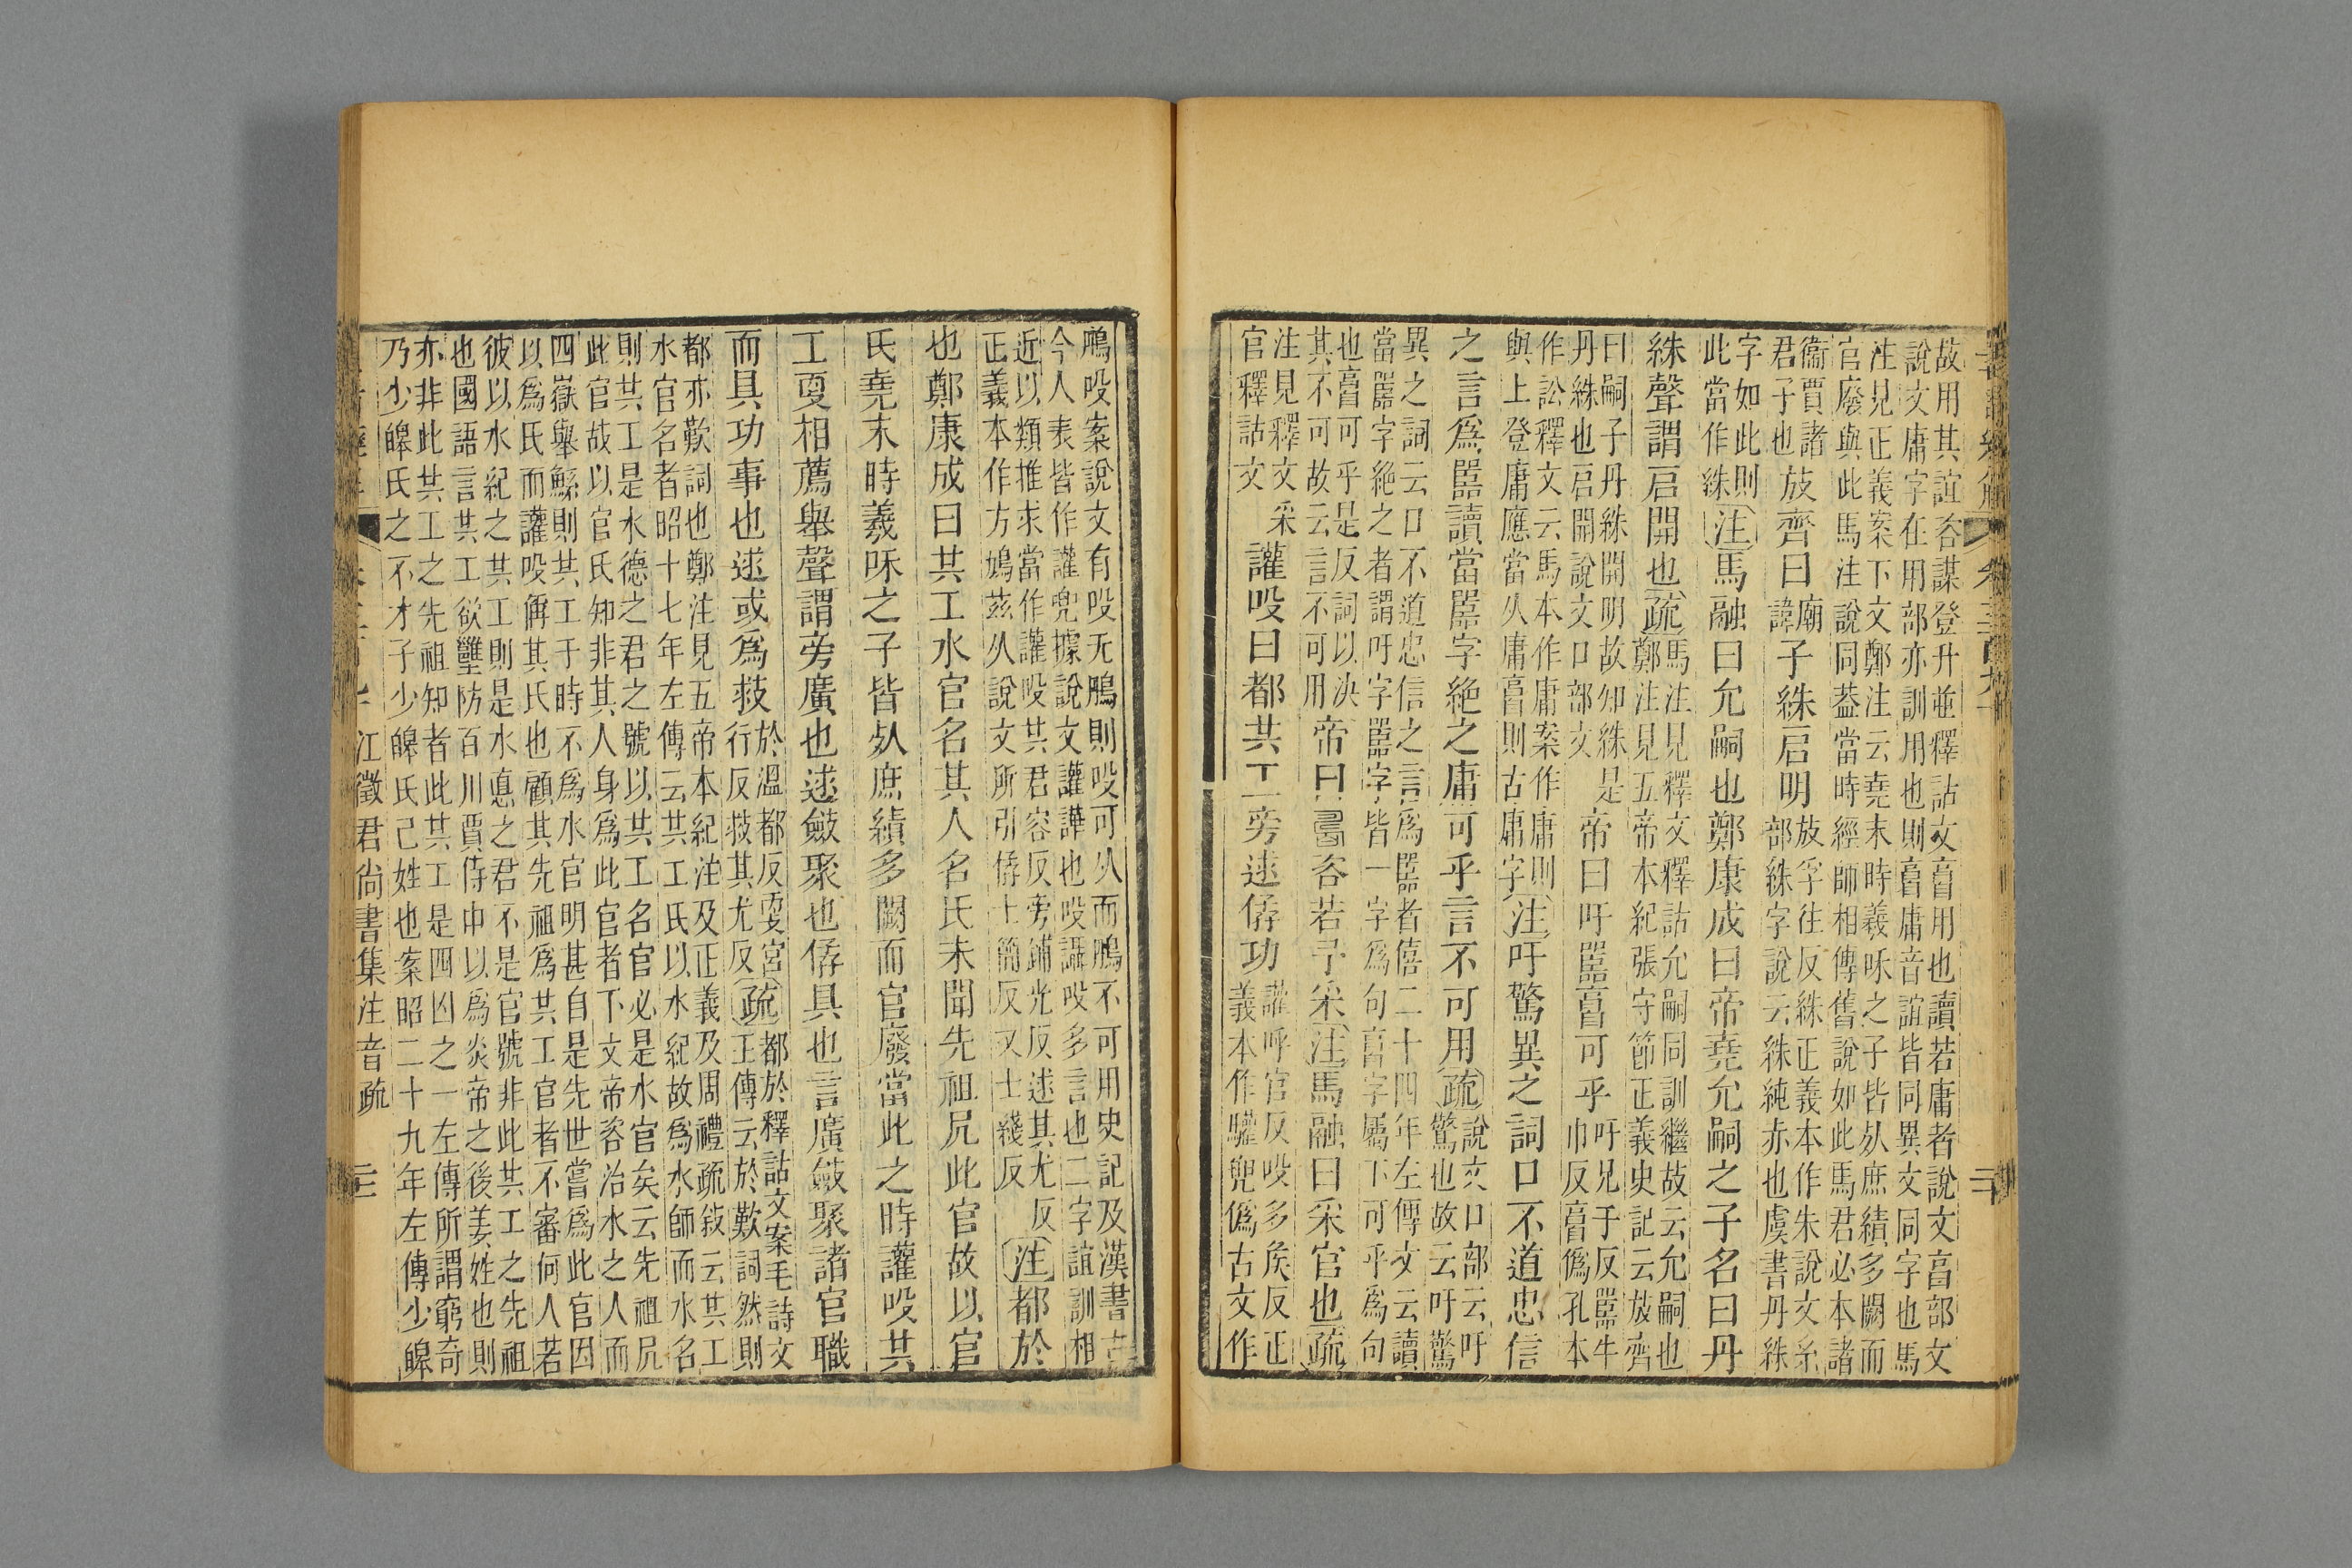 故用其誼咨謀登升並釋詁文𠅏用也讀若庸者說文𠅏部文
說文庸字在用部亦訓用也則𠅏庸音誼皆同異文同字也馬
注見正義案下文鄭注云堯末時羲咊之子皆𣦸庶績多闕而
官廢與此馬注說同葢當時經師相傳舊說如此馬君必本諸
衞賈諸
君子也
放齊曰
廟
諱
子絑启明
放孚往反絑正義本作朱說文糸
部絑字說云絑純赤也虞書丹絑
字如此則
此當作絑
注馬融曰允嗣也鄭康成曰帝堯允嗣之子名曰丹
絑聲謂启開也疏
馬注見釋文釋詁允嗣同訓繼故云允嗣也
鄭注見五帝本紀張守節正義史記云放齊
曰嗣子丹絑開明故知絑是
丹絑也启開說文口部文
帝曰吁嚚𠅏可乎
吁兄于反嚚牛
巾反𠅏僞孔本
作訟釋文云馬本作庸案作庸則
與上登庸應當从庸𠅏則古庸字
注吁驚異之詞口不道忠信
之言爲嚚讀當嚚字絶之庸可乎言不可用疏
說文口部云吁
驚也故云吁驚
異之詞云口不道忠信之言爲嚚者僖二十四年左傳文云讀
當嚚字絶之者謂吁字嚚字皆一字爲句𠅏字屬下可乎爲句
也𠅏可乎是反詞以決
其不可故云言不可用
帝曰𠷎咨若予采注馬融曰采官也疏
注見釋文采
官釋詁文
讙吺曰都共工旁逑孱功
讙呼官反吺多矦反正
義本作驩兜僞古文作
鴅吺案說文有吺无鴅則吺可从而鴅不可用史記及漢書古
今人表皆作讙兜據說文讙譁也吺讘吺多言也二字誼訓相
近以類推求當作讙吺共君容反旁鋪光反逑其尤反
正義本作方鳩茲从說文所引孱士簡反又士綫反
注都於
也鄭康成曰共工水官名其人名氏未聞先祖凥此官故以官
氏堯末時羲咊之子皆𣦸庶績多闕而官廢當此之時讙吺共
工更相薦舉聲謂旁廣也逑斂聚也孱具也言廣斂聚諸官職
而具功事也逑或爲救
於溫都反更宮
行反救其尤反
疏
都於釋詁文案毛詩文
王傳云於歎詞然則
都亦歎詞也鄭注見五帝本紀注及正義及周禮疏敍云共工
水官名者昭十七年左傳云共工氏以水紀故爲水師而水名
則共工是水德之君之號以共工名官必是水官矣云先祖凥
此官故以官氏知非其人身爲此官者下文帝咨治水之人而
四嶽舉鯀則共工于時不爲水官明甚自是先世嘗爲此官因
以爲氏而讙吺偁其氏也顧其先祖爲共工官者不審何人若
彼以水紀之共工則是水悳之君不是官號非此共工之先祖
也國語言共工欲壅防百川賈侍中以爲炎帝之後姜姓也則
亦非此共工之先祖知者此共工是四凶之一左傳所謂窮奇
乃少皞氏之不才子少皞氏己姓也案昭二十九年左傳少皞
江徵君尙書集注音疏